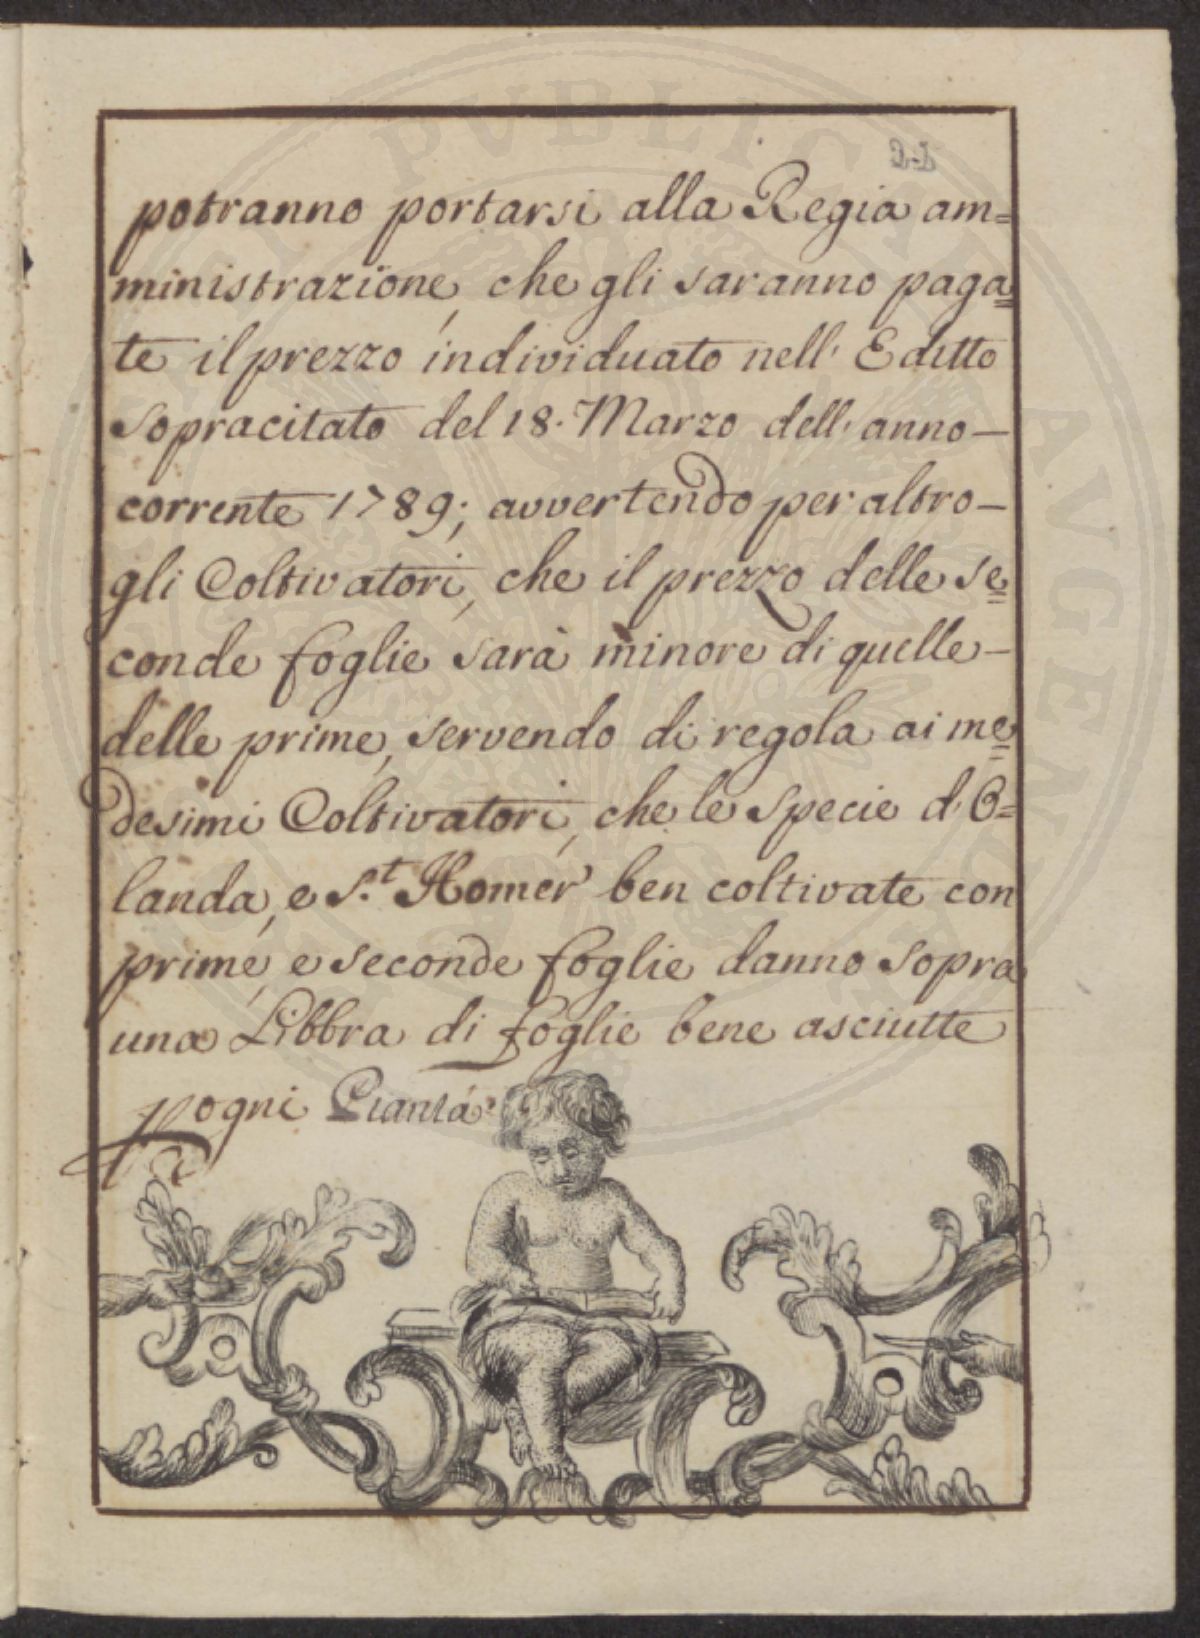 potranno portarsi alla Regia am=
ministrazione, che gli saranno paga=
te il prezzo individuato nell' Editto
sopracitato del 18. Marzo dell' anno—
corrente 1789; avvertendo per altro—
gli Coltivatori, che il prezzo delle se=
conde foglie sarà minore di quelle—
delle prime, servendo di regola ai me=
desimi Coltivatori, che le specie d' O=
landa, e S.t Homer ben coltivate con
prime, e seconde foglie danno sopra
una Libbra di foglie bene asciutte
p ogni Pianta.